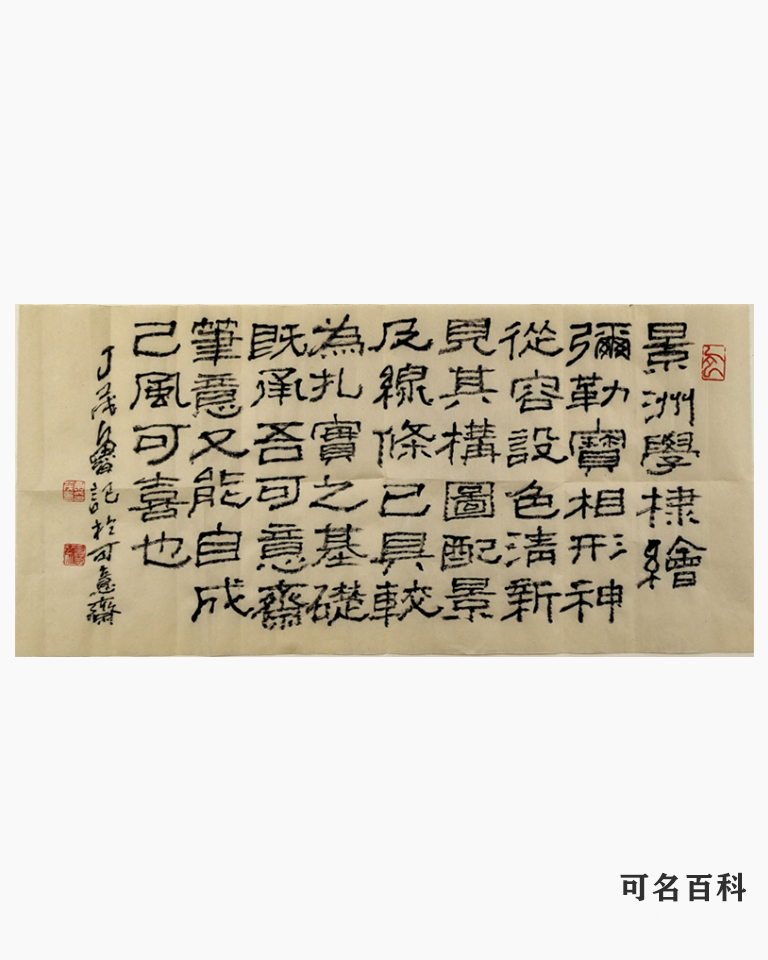 景洲學棣繪
彌勒寶相形神
從容設色清新
見其構圖配景
及線條已具較
為扎實之基礎
既承吾可意齋
筆意又能自成
己風可喜也
丁茂魯記於可意齋
可名百科